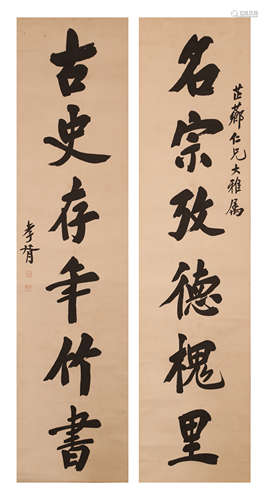 芷薌仁兄大雅属
名宗攷德槐里
古史存年竹書
孝胥